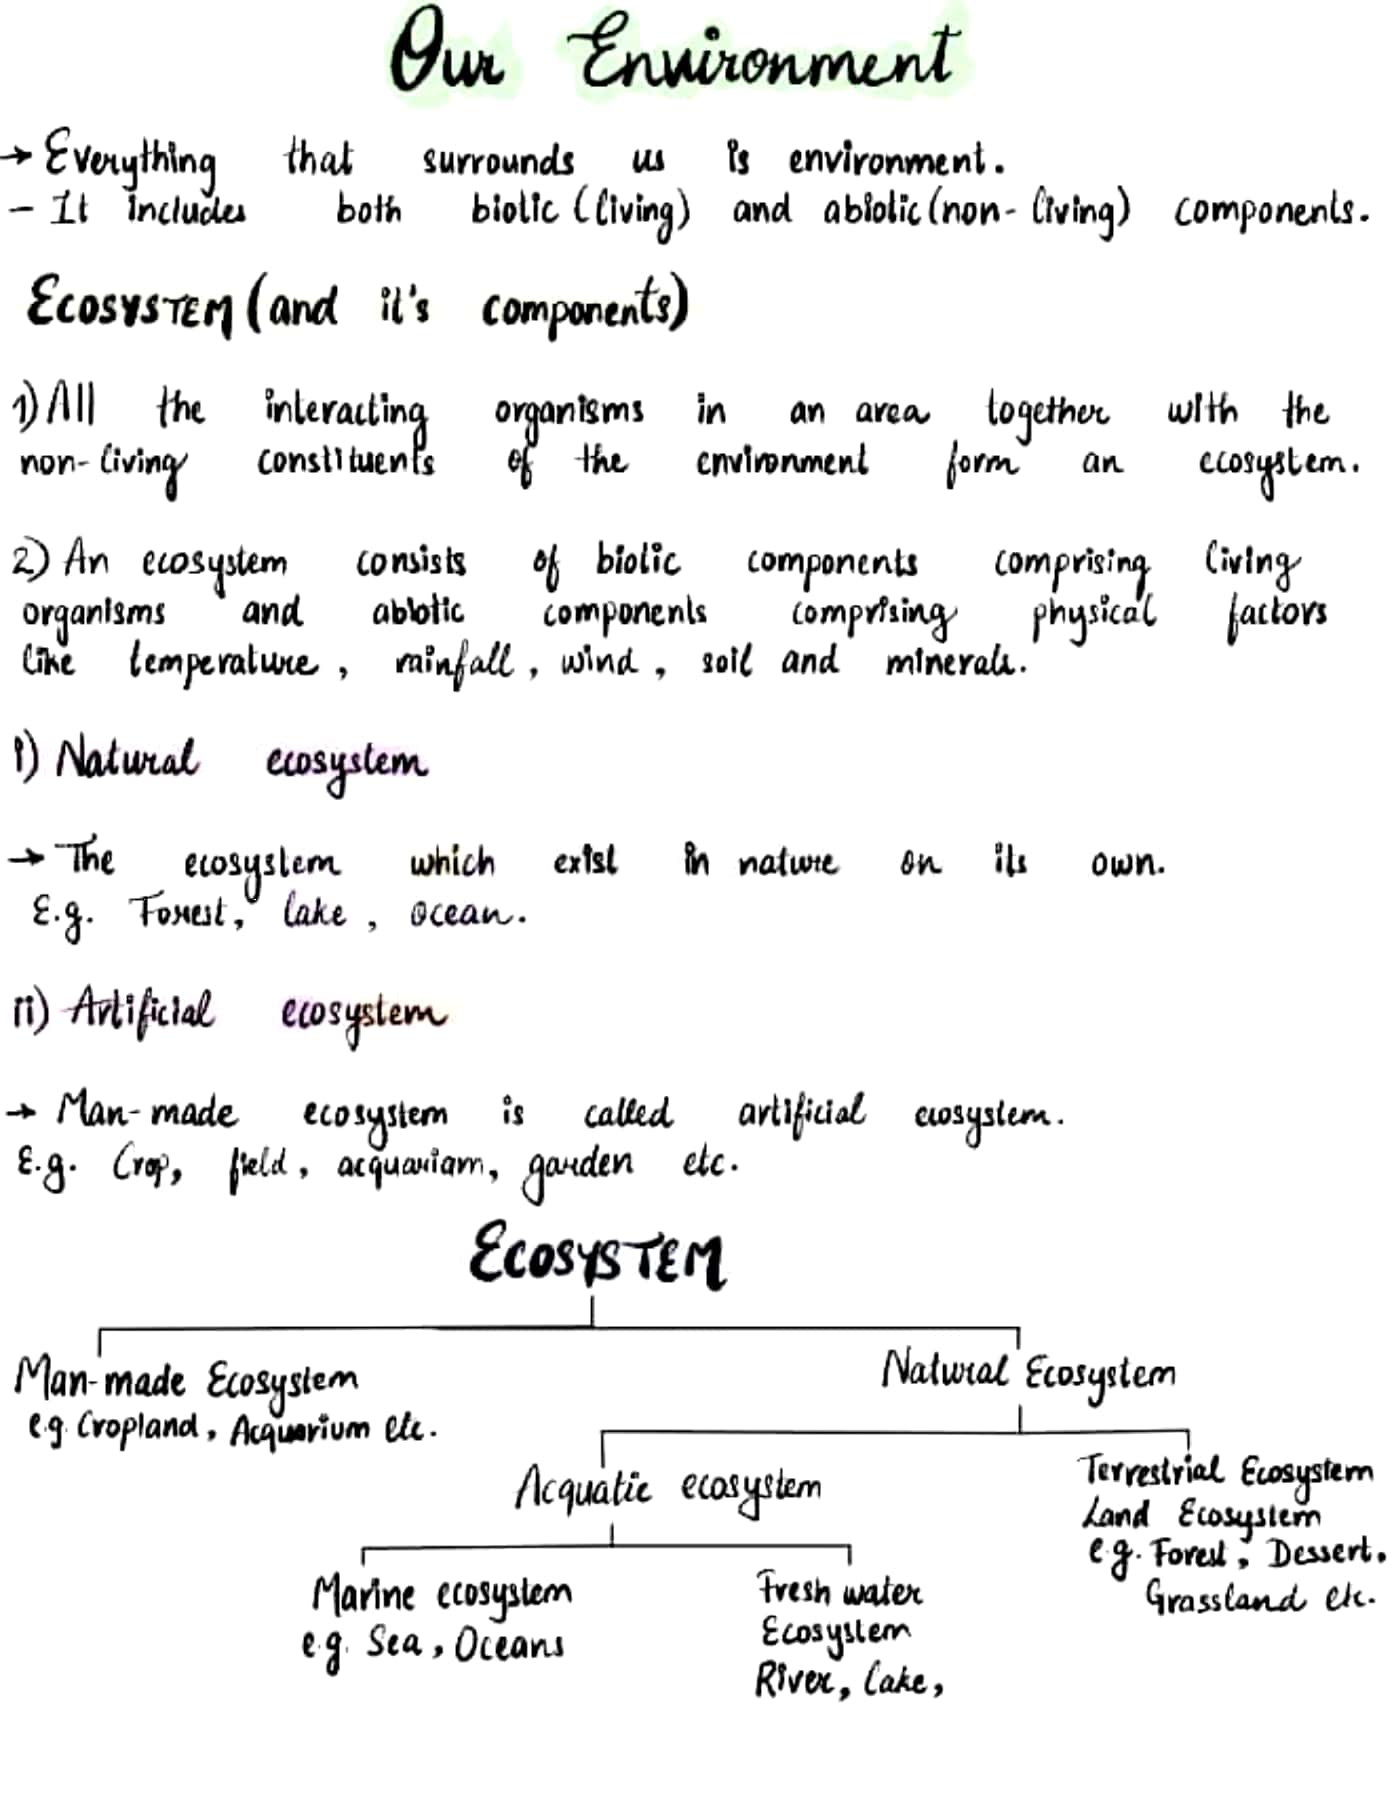 Our Environment
→ Everything that surrounds us is environment.
- It includes both biotic (living) and abiotic (non-living) components.
ECOSYSTEM (and it's components)
1) All the interacting organisms in an area together with the
non-living constituents of the environment form an ecosystem.
2) An ecosystem consists of biotic components comprising living
organisms and abiotic components comprising physical factors
like temperature, rainfall, wind, soil and minerals.
i) Natural ecosystem
→ The ecosystem which exist in nature on its own.
E.g. Forest, lake, ocean.
ii) Artificial ecosystem
→ Man-made ecosystem is called artificial ecosystem.
E.g. Crop, field, acquariam, garden etc.
ECOSYSTEM
Man-made Ecosystem
e.g. Cropland, Acquarium etc.
Natural Ecosystem
Acquatic ecosystem
Terrestrial Ecosystem
Land Ecosystem
e.g. Forest, Dessert,
Grassland etc.
Marine ecosystem
e.g. Sea, Oceans
Fresh water
Ecosystem
River, Lake,